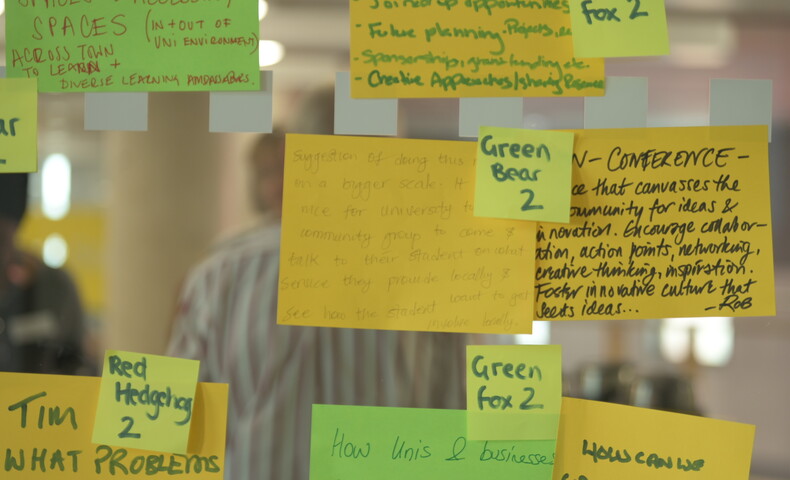 SPACES
(IN + OUT OF
UNI ENVIRONMENT)
ACROSS TOWN
TO LEARN +
DIVERSE LEARNING AMBASSADORS.
- Joined up opportunities
- Future planning. Projects,
- Sponsorship, grant funding etc.
- Creative Approaches/sharing Resource
Fox 2
Green
Bear
2
Suggestion of doing this
on a bigger scale. It
nice for university to
community group to come &
talk to their student on what
service they provide locally &
see how the student want to get
involve locally.
N - CONFERENCE -
ce that canvasses the
community for ideas &
innovation. Encourage collabor-
ation, action points, networking,
creative thinking, inspiration.
Foster innovative culture that
seeds ideas...
- ROB
Red
Hedgehog
2
TIM
WHAT PROBLEMS
Green
Fox 2
How Unis & businesses
HOW CAN WE